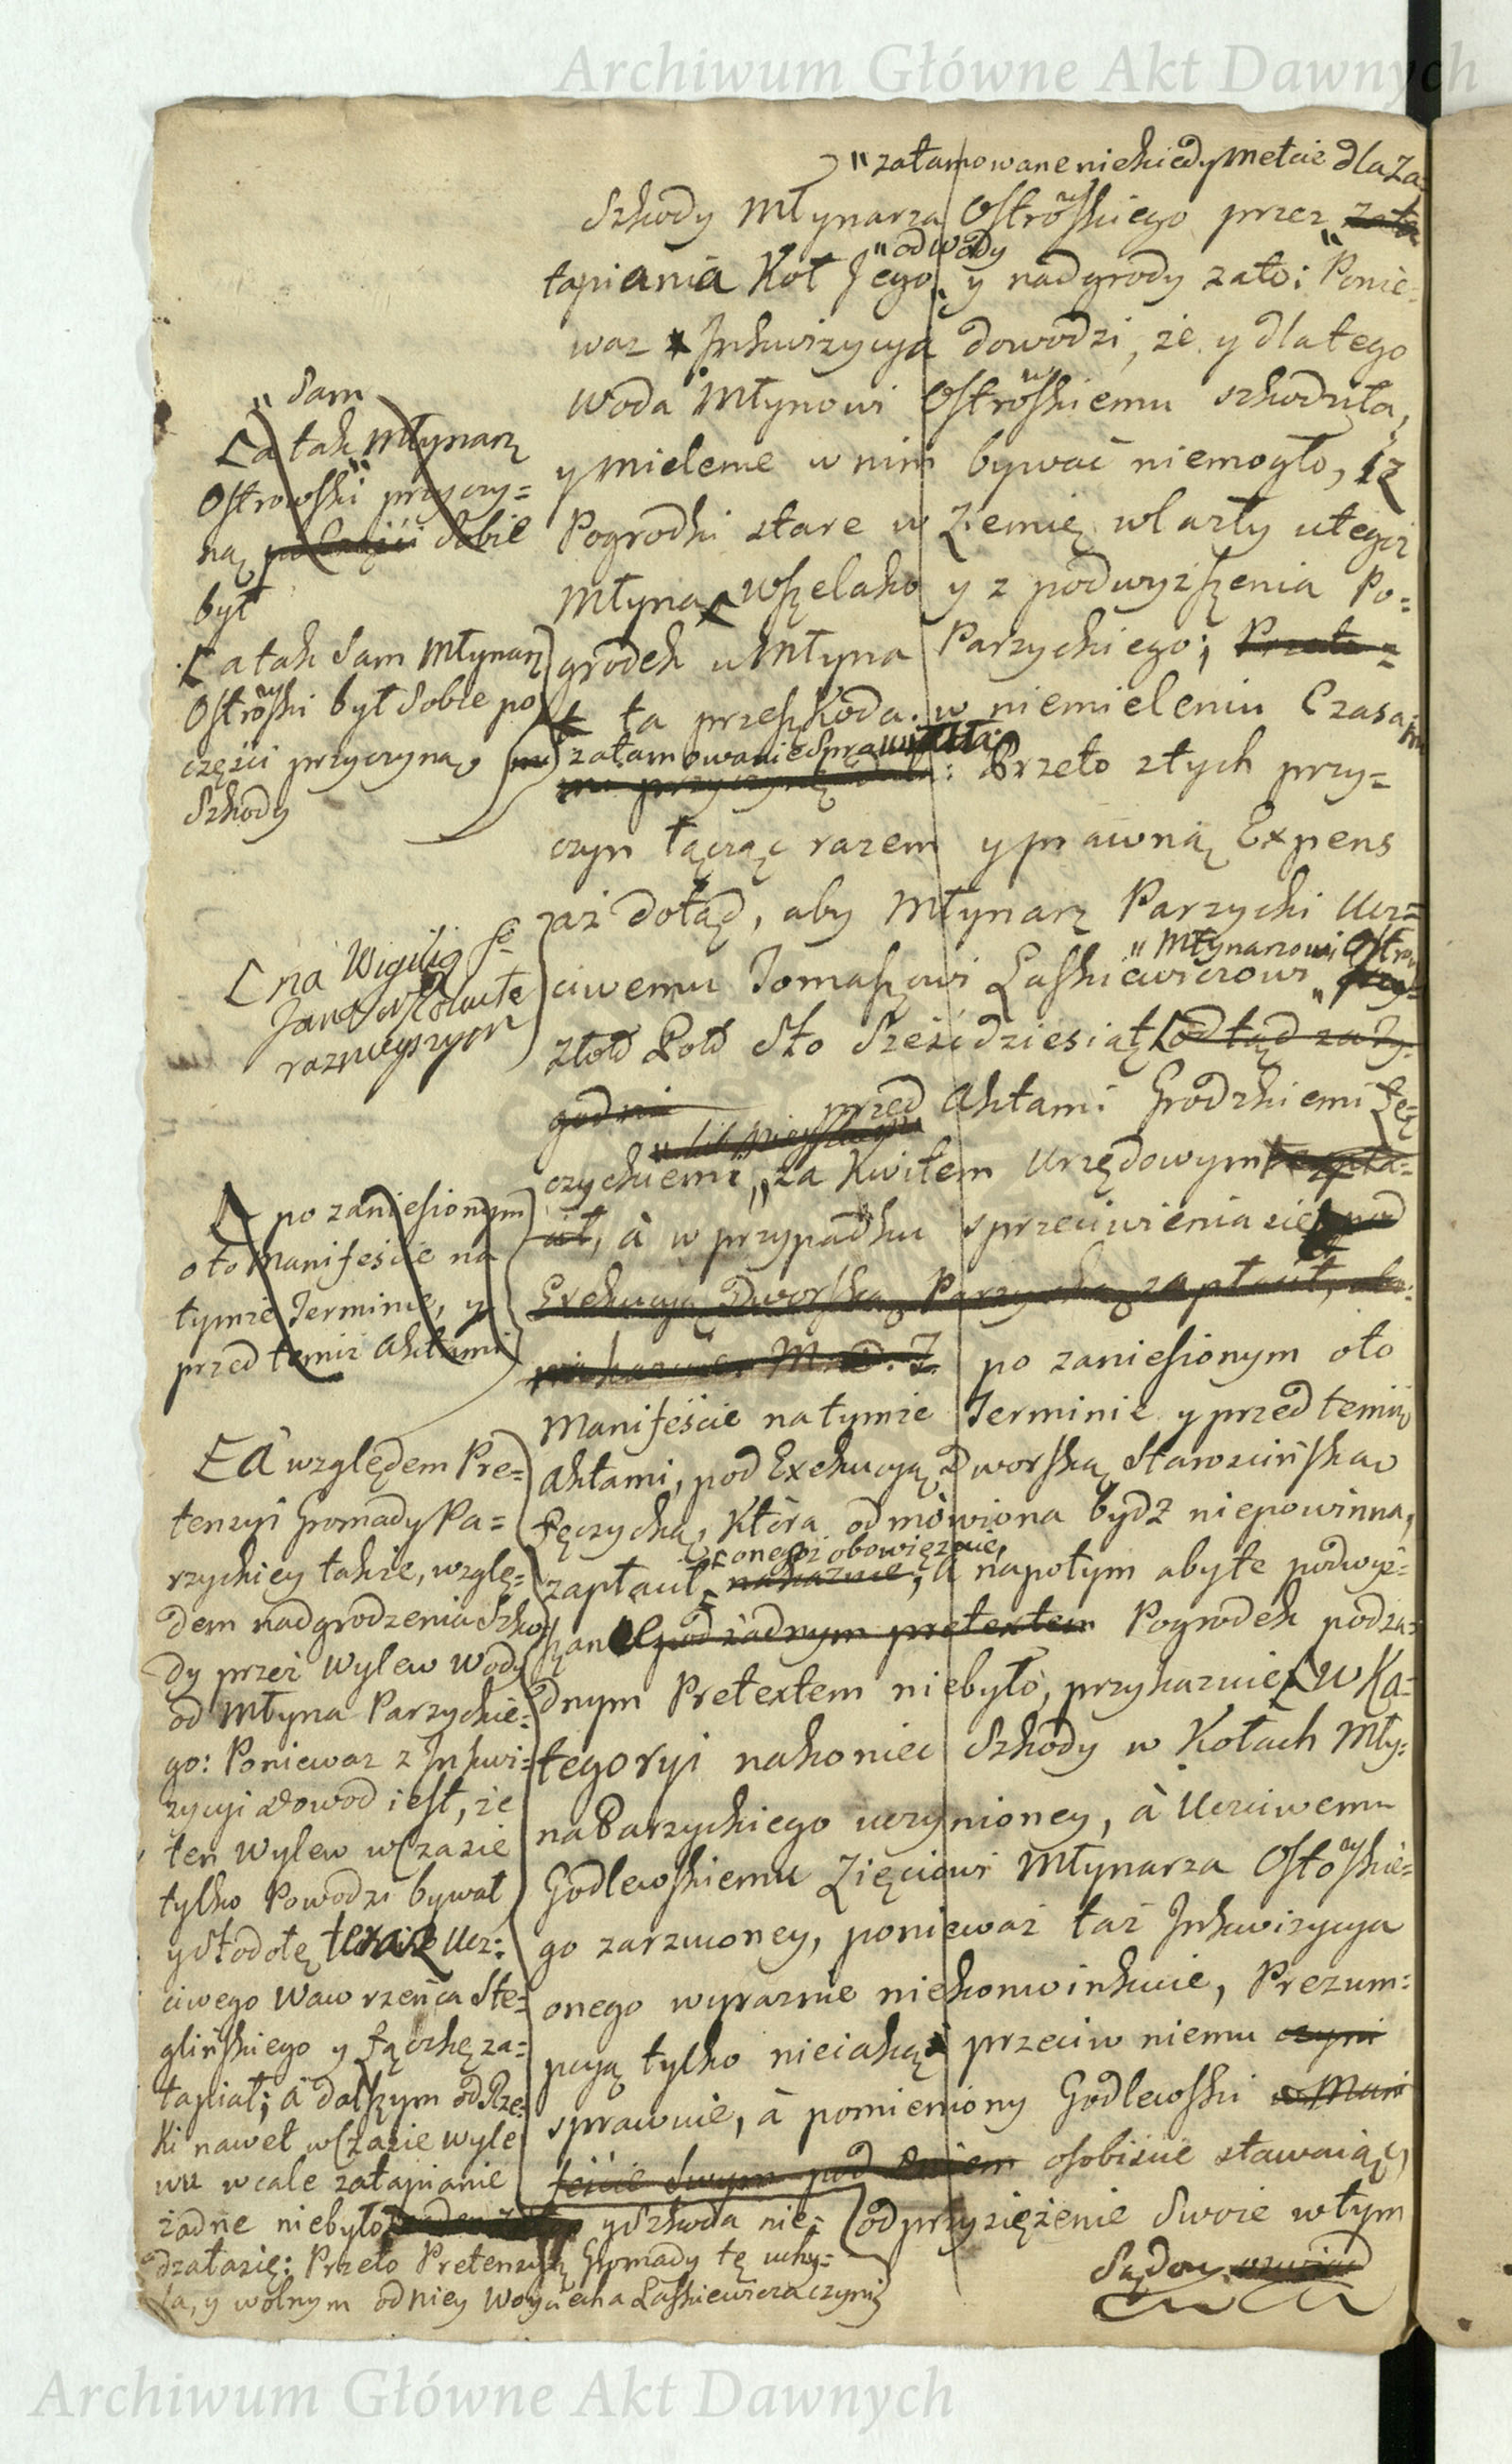 Archiwum Główne Akt Dawnych
"załamowane niekiedy mełcie dla Za=
Szkody Młynarza Ostrowskiego przez zała
tapiania Koł Jego y nadgrody zało: Ponie=
"odwody
waz Inkwizycya dowodzi, że y dlatego
woda Młynowi Ostrowskiemu szkodziła,
y mielenie w nim bywać niemogło, iż
Pogrodki stare w Ziemię wlazły utegoż
Młyna Wszelako y z podwyższenia Po=
grodek u Młyna Parzyckiego; Przeto=
ta przeszkoda w niemieleniu Czasa
załamowanie Sprawiła:
: Przeto z tych przy=
czyn łącząc razem y prawną Expens
aż dotąd, aby Młynarz Parzycki Ucz=
"Młynarzowi Ostrow
ciwemu Tomaszowi Laskiewiczowi
złott Polo Sto Sześćdziesiąt odtąd za ty=
godni przed Aktami Grodzkiemi Łę=
czyckiemi, za Kwitem Urzędowym zapła=
cił, à w przypadku sprzeciwienia się pod
Exekucyą Dworską Parzycką zapłacił, 
po zaniesionym oto
Manifeście natymże Terminie y przed temiż
Aktami, pod Exekucyą Dworską Starościńską
Łęczycką, Która odmówiona bydź niepowinna,
onegoż obowiązuie,
zapłacił, nakazuie; A napotym aby te podwyż=
szane pod żadnym pretextem Pogrodek podża=
dnym Pretextem niebyło, przykazuie W Ka=
tegoryi nakoniec Szkody w Kołach Mły=
na Parzyckiego uczynioney, à Uczciwemu
Godlewskiemu Zięciowi Młynarza Ostowskie=
go zarzuconey, ponieważ taż Inkwizycya
onego wyraznie niekonwinkuie, Prezum=
pcyą tylko nieiaką przeciw niemu czyni
sprawuie, à pomieniony Godlewski w Mani
feście Swym pod Dniem osobiście stawaiąc,
odprzysiężenie Swoie w tym
Sądow
"Sam
A tak Młynarz
Ostrowski przyczy=
ną po części Sobie
był
A tak Sam Młynarz
Ostrowski był Sobie po
części przyczyną
Szkody
na Wigilią S.
Jana
po zaniesionym
oto Manifeście na
tymże Terminie, y
przed temiż Aktami
A względem Pre=
tensyi Gromady Pa=
rzyckiey także, wzglę=
dem nadgrodzenia Szko
dy przez wylew wody
od Młyna Parzyckie=
go: Poniewaz z Inkwi=
zycyi dowod iest, że
ten wylew w Czasie
tylko Powodzi bywał
y Stodołę teraz Ucz=
ciwego Wawrzeńca Ste=
glińskiego y Łączkę za=
tapiał; à dalszym od Rze=
ki nawet w Czasie wyle
wu wcale zatapianie
żadne niebyło y Szkoda nie=
działa się: Przeto Pretensyą Gromady tę uchy=
la, y wolnym od niey Woyciecha Laskiewicza czyni
Archiwum Główne Akt Dawnych